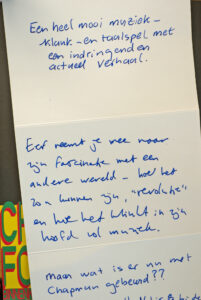 Een heel mooi muziek-
-klank-en taalspel met
een indringend en
actueel verhaal.
Eef neemt je mee naar
zijn fascinatie met een
andere wereld - hoe het
zou kunnen zijn, "revolutie"
en hoe het klinkt in zijn
hoofd vol muziek.
maar wat is er nu met
Chapman gebeurd??
CH
FO